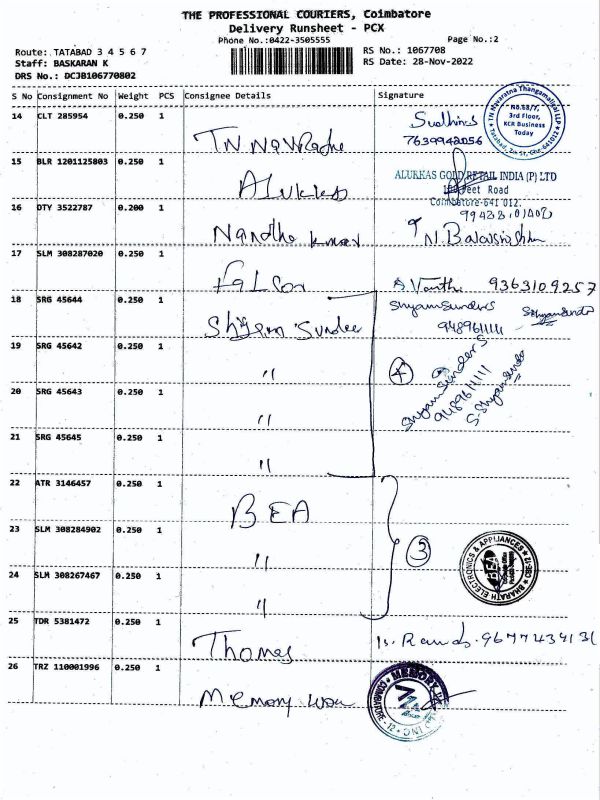 THE PROFESSIONAL COURIERS, Coimbatore
Delivery Runsheet - PCX
Phone No.:0422-3505555
Page No.:2
Route: TATABAD 3 4 5 6 7
Staff: BASKARAN K
DRS No.: DCJB106770802
RS No.: 1067708
RS Date: 28-Nov-2022
S No Consignment No Weight PCS Consignee Details Signature
14 CLT 285954 0.250 1 TN Sudhir
7639942056
TN Navaratna Thangamaligai LLP
No.68/7,
3rd Floor,
KCR Business
Today
Tatabad, Cbe-641012
15 BLR 1201125803 0.250 1 Alukkas
ALUKKAS GOLD RETAIL INDIA (P) LTD
100 Feet Road
Coimbatore-641 012.
16 DTY 3522787 0.200 1 Nandha kumar
17 SLM 308287020 0.250 1 Falcon 9363109257
18 SRG 45644 0.250 1 Shyam Sunder ShyamSunderS
9489611111
S.ShyamSunder
19 SRG 45642 0.250 1 "
20 SRG 45643 0.250 1 "
4
ShyamSunderS
9489611111
S.ShyamSunder
21 SRG 45645 0.250 1 "
22 ATR 3146457 0.250 1 BEA
23 SLM 308284902 0.250 1 "
3
BHARATH ELECTRONICS & APPLIANCES
BEA
CBE-12
24 SLM 308267467 0.250 1 "
25 TDR 5381472 0.250 1 Thomas 9677434131
26 TRZ 110001996 0.250 1 Memory